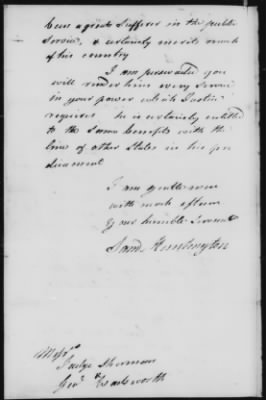 been a great Sufferer in the public
Service, & certainly merits much
of his country
I am perswaded you
will render him every Service
in your power which Justice
requires. he is certainly entitled
to the same benefits with the
line of other States in his pre
dicament
I am gentlemen
with much esteem
your humble Servant
Sam.l Huntington
Mess.rs
Judge Sherman
Gen.l Wadsworth